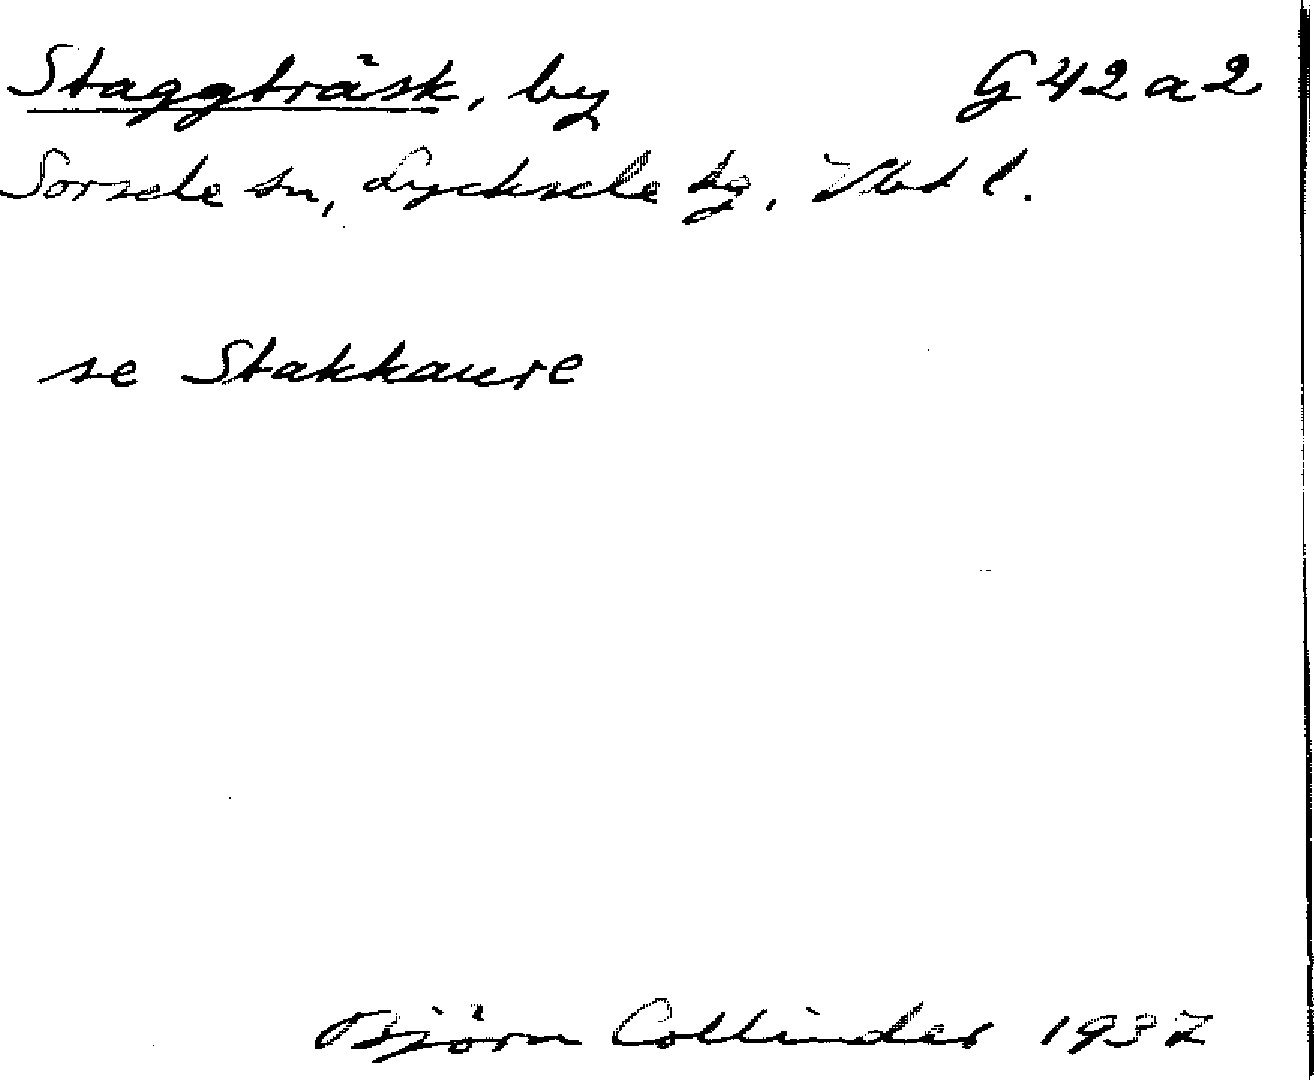 Staggträsk, by G42a2
Sorsele sn, Lycksele tg, Vbd l.
se Stakkaure
Björn Collinder 1937